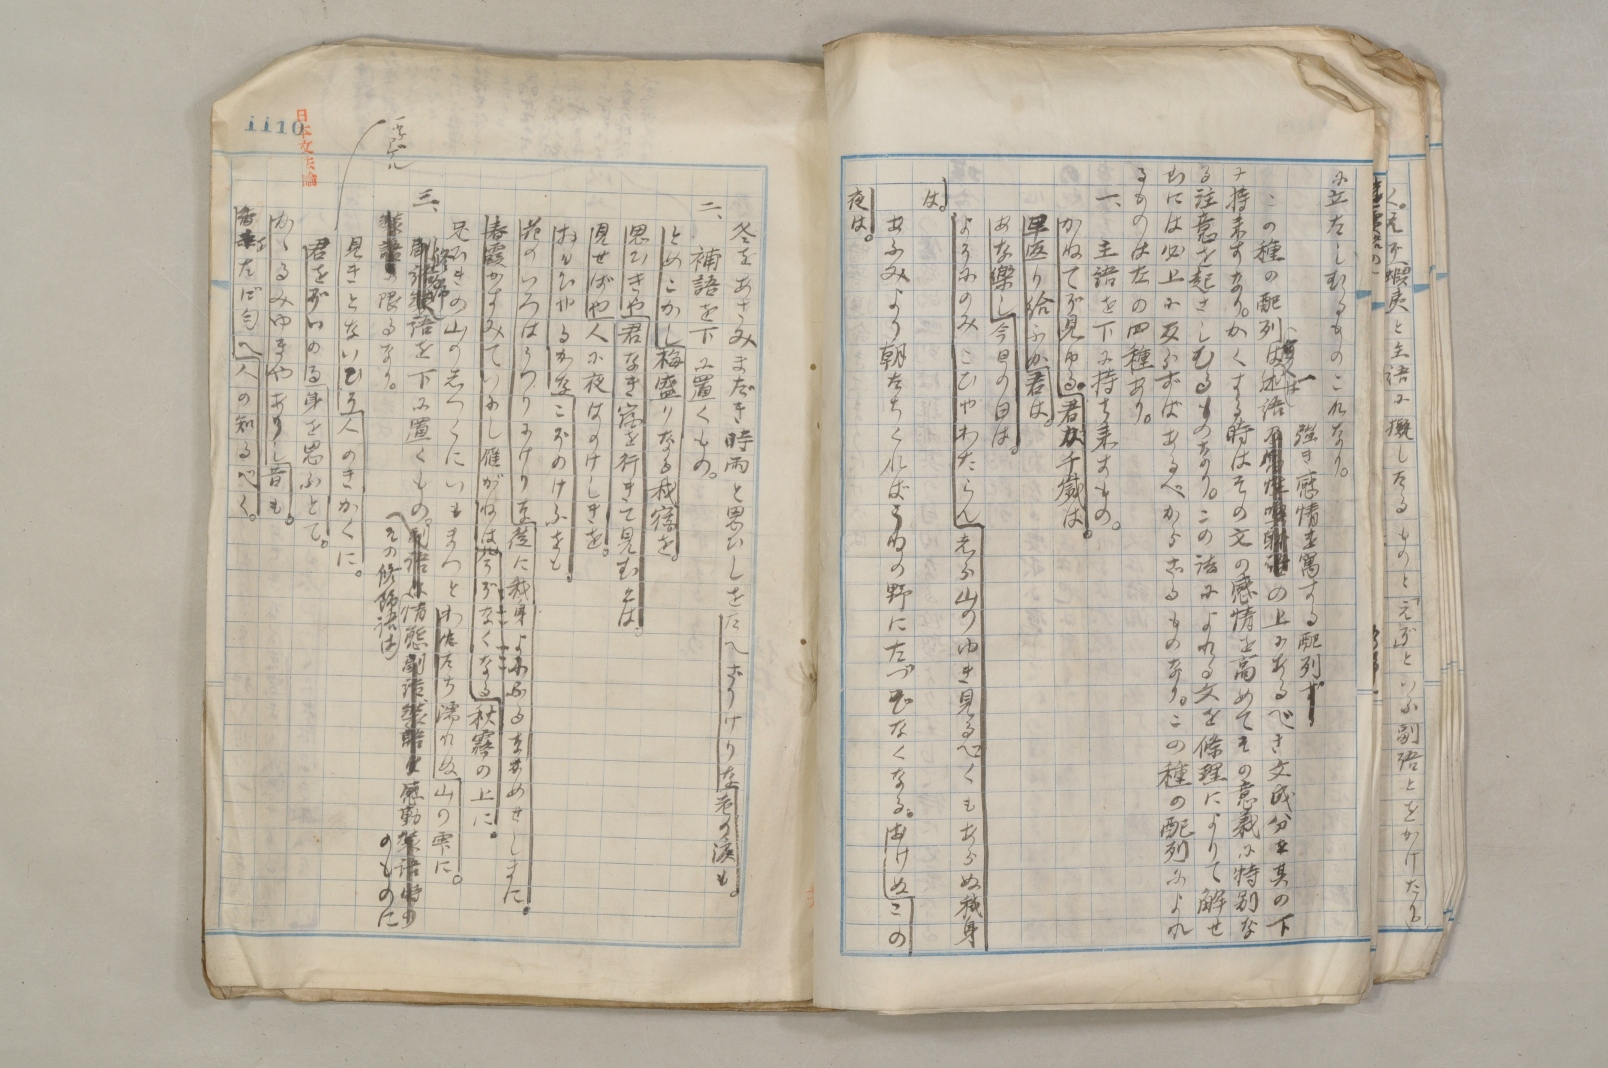 く。元不蝦夷と主語に擬したるものと「えぞ」といふ副語とをかけたる
に立たしむるものこれなり。
強き感情を寓する配列
この種の配列は述語又は
の上にあるべき文成分を其の下
に持来すなり。かくする時はその文の感情を高めてその意義に特別な
る注意を起さしむるものなり。この法によれる文を條理によりて解せ
むには必上に反らずばあるべからざるものなり。この種の配列によれ
るものは左の四種あり。
一、主語を下に持ち来すもの。
かねてぞ見ゆる君が千歳は。
早返り給ふか君は。
あな楽し今日の日は。
よそにのみこひやわたらんしら山のゆき見るべくもあらぬ我身
は。
あふみより朝たちくればうねの野にたづぞなくなる。あけぬこの
夜は。
冬をあさみまだき時雨と思ひしをたへざりけりな老の涙も。
二、補語を下に置くもの。
とめこかし梅盛りなる我宿を。
思ひきや君なき宿を行きて見むとは。
見せばや人に夜はのけしきを。
おもひやるかなこぞのけふをも
花のいろはうつりにけりな徒に我身よにふるながめせしまに。
春霞かすみていにし雁がねは今ぞなくなる秋霧の上に。
足びきの山のしづくにいもまつとわれたち濡れぬ山の雫に。
三、修飾語を下に置くもの。
その修飾語は
のものに
限るなり。
一字ゲル
見きとないひそ人のきかくに。
君をぞいのる身を思ふとて。
かゝるみゆきやありし昔も。
たゞ匂へ人の知るべく。
日本文法論
ii10